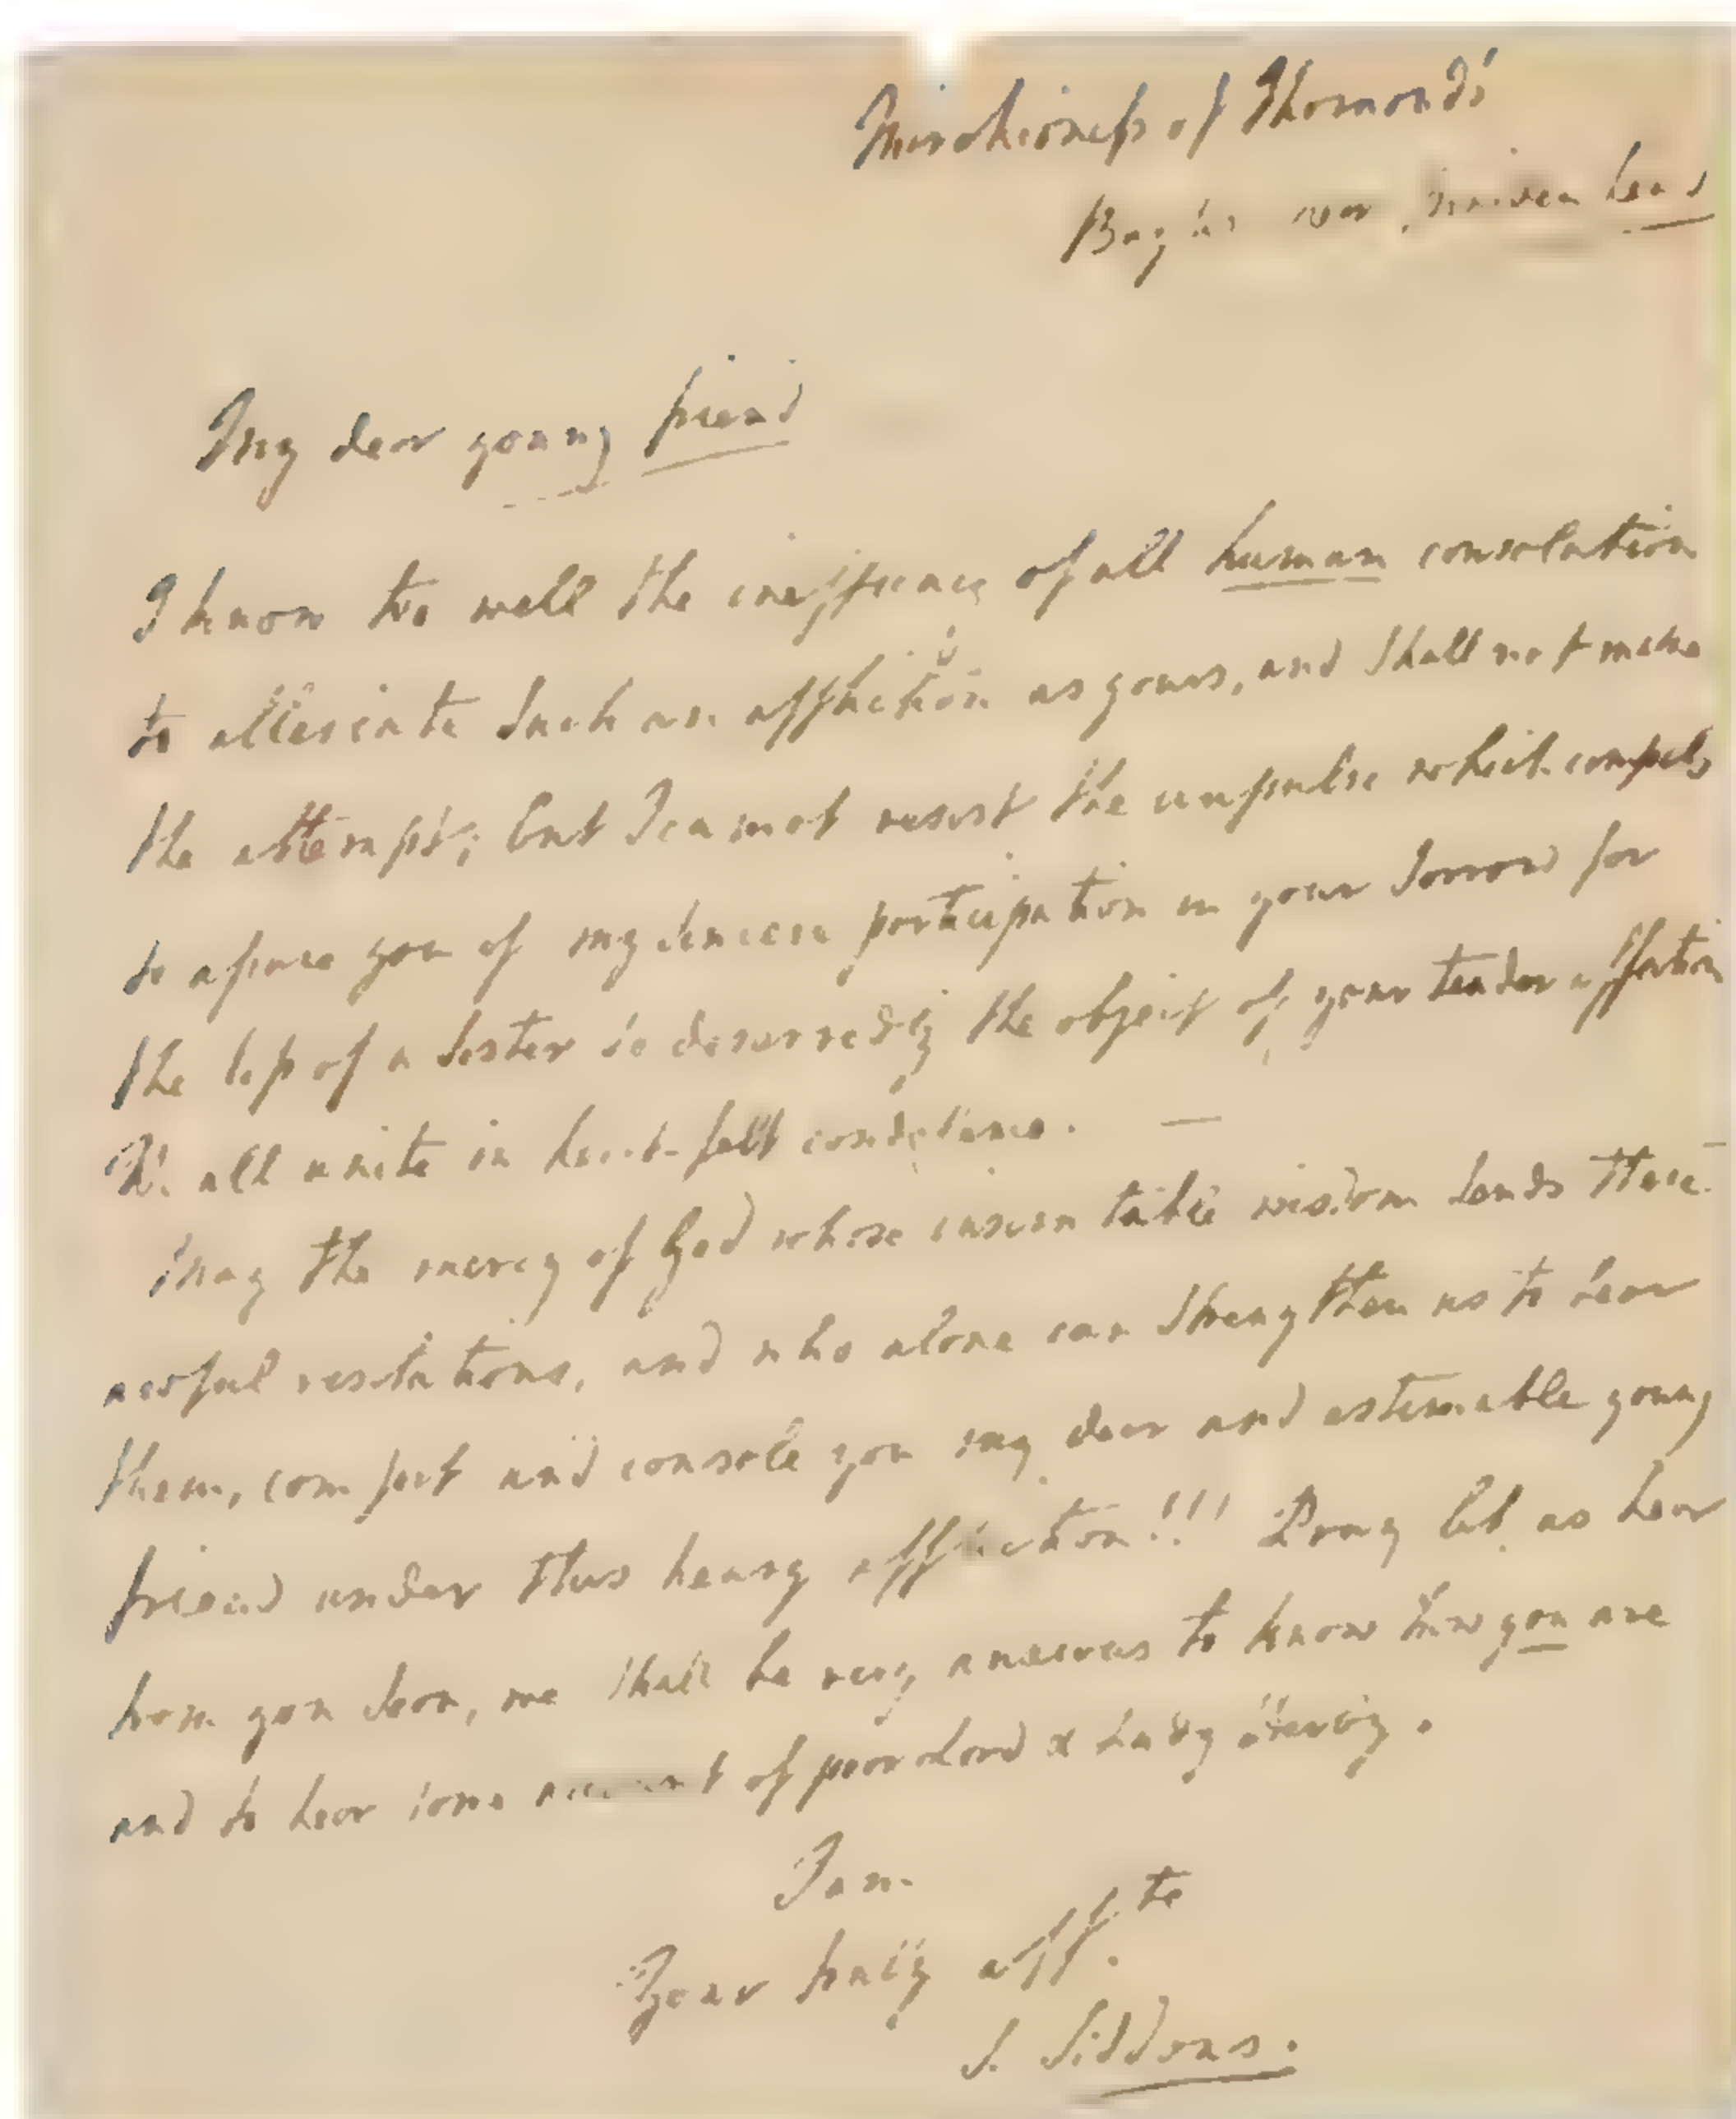 Marchioness of Thomond's
My dear young friend
I know too well the inefficacy of all human consolation
to alleviate such an affliction as yours, and shall not make
the attempt; but I cannot resist the impulse which compels
to assure you of my sincere participation in your sorrow for
the loss of a sister so deservedly the object of your tender affection
We all unite in heart-felt condolence. —
May the mercy of God whose inscrutable wisdom sends these
awful visitations, and who alone can strengthen us to bear
them, comfort and console you my dear and estimable young
friend under this heavy affliction!!! Pray let us hear
how you bear, we shall be very anxious to know how you are
and to hear some account of poor Lord & Lady
I am
Your truly afft.te
S. Siddons.